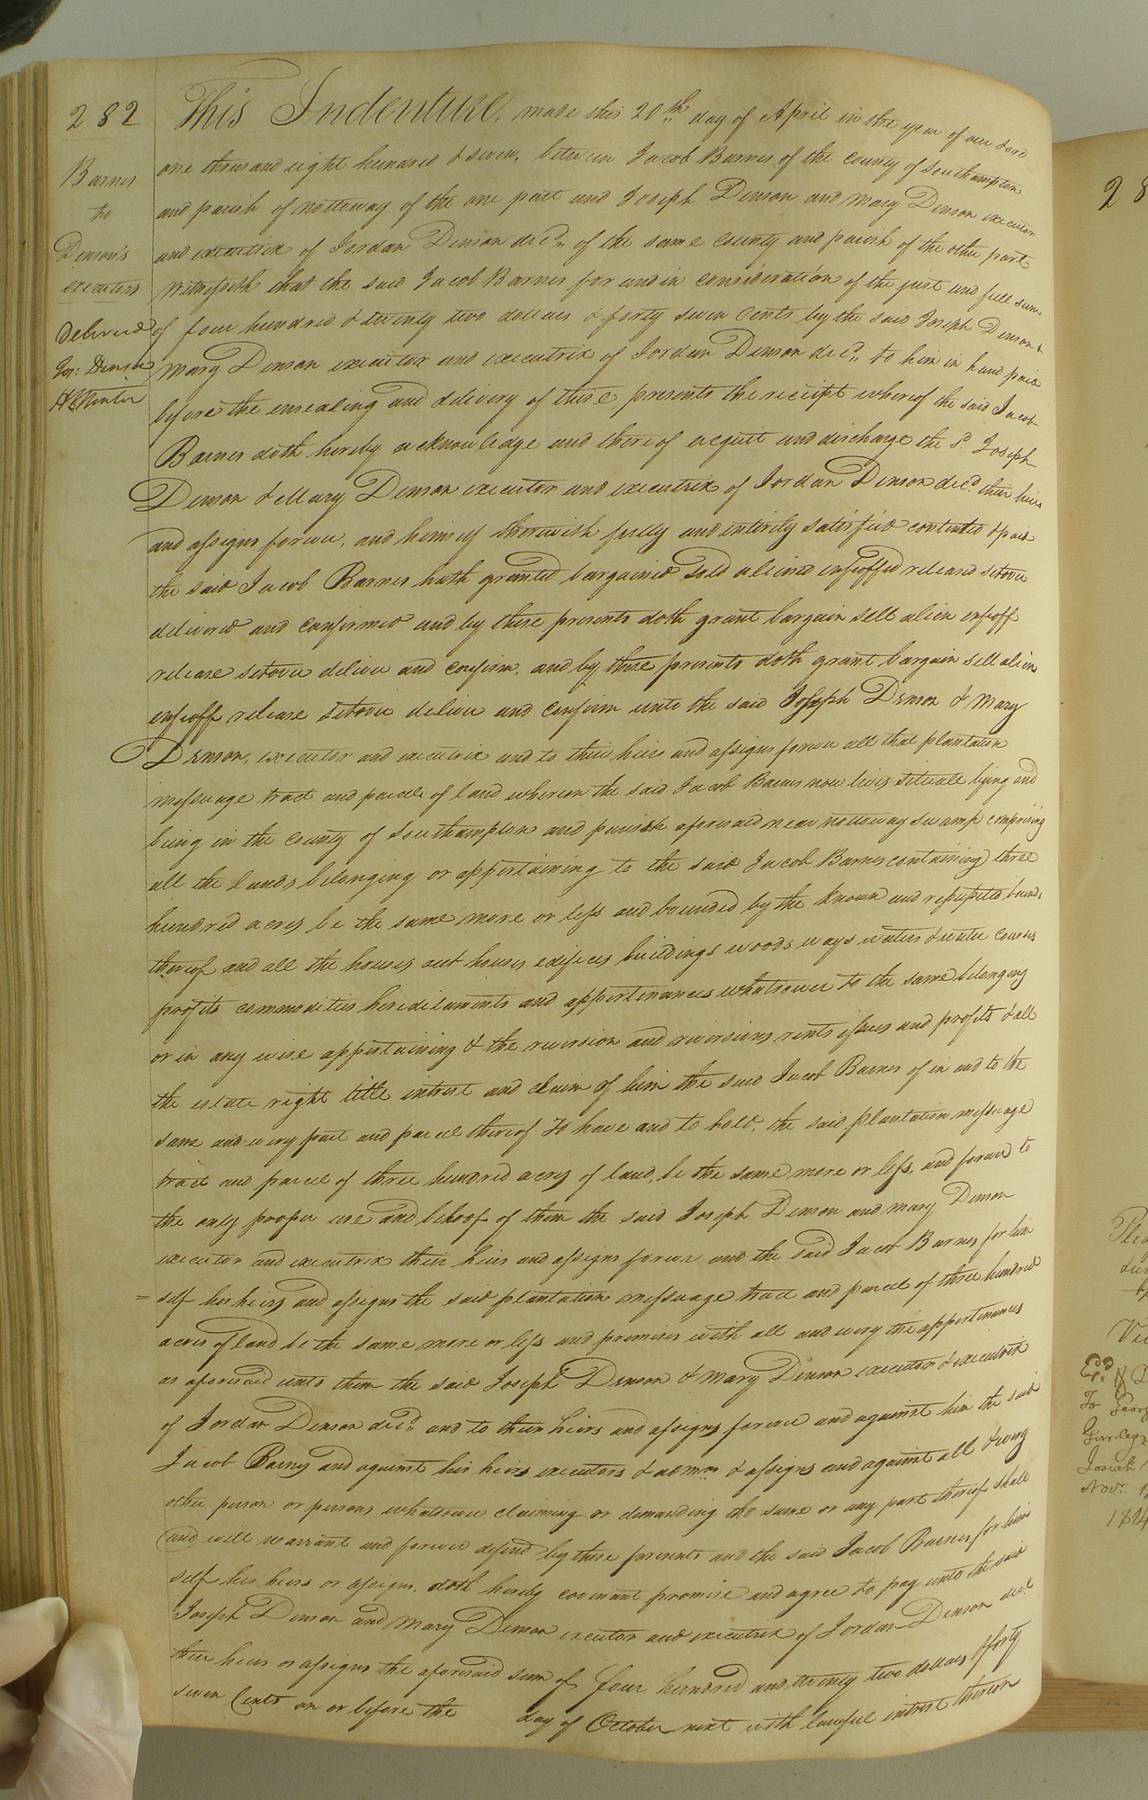 282
Barnes
to
Denson's
executors
Delivered
Jos: Denson
This Indenture, made this 20th day of April in the year of our Lord
one thousand eight hundred & seven, between Jacob Barnes of the county of Southampton
and parish of nottoway of the one part and Joseph Denson and Mary Denson executor
and executrix of Jordan Denson decd. of the same county and parish of the other part
Witnesseth that the said Jacob Barnes for and in consideration of the just and full sum
of four hundred & twenty two dollars & forty seven cents by the said Joseph Denson &
Mary Denson executor and executrix of Jordan Denson decd. to him in hand paid
before the ensealing and delivery of these presents the receipt whereof the said Jacob
Barnes doth hereby acknowledge and thereof acquit and discharge the sd. Joseph
Denson & Mary Denson executor and executrix of Jordan Denson decd. their heirs
and assigns forever, and himself therewith fully and entirely satisfied contented & paid
the said Jacob Barnes hath granted bargained sold aliened enfeoffed released setover
delivered and confirmed and by these presents doth grant bargain sell alien enfeoff
release setover deliver and confirm, and by these presents doth grant bargain sell alien
enfeoff release setover deliver and confirm unto the said Joseph Denson & Mary
Denson, executor and executrix and to their heirs and assigns forever all that plantation
messuage tract and parcel of land whereon the said Jacob Barnes now lives situate lying and
being in the county of Southampton and parish aforesaid near nottoway swamp comprising
all the lands belonging or appertaining to the said Jacob Barnes containing three
hundred acres be the same more or less and bounded by the known and reputed bounds
thereof and all the houses out houses edifices buildings woods ways waters & water courses
profits commodities hereditaments and appertinances whatsoever to the same belonging
or in any wise appertaining & the reversion and reversions rents issues and profits & all
the estate right title intrest and claim of him the said Jacob Barnes of in and to the
same and every part and parcel thereof To have and to hold, the said plantation messuage
tract and parcel of three hundred acres of land, be the same more or less, and forever to
the only proper use and behoof of them the said Joseph Denson and Mary Denson
executor and executrix their heirs and assigns forever and the said Jacob Barnes for him
=self his heirs and assigns the said plantation messuage tract and parcel of three hundred
acres of land be the same more or less and premises with all and every the appertinances
as aforesaid unto them the said Joseph Denson & Mary Denson executor & executrix
of Jordan Denson decd. and to their heirs and assigns forever and against him the said
Jacob Barnes and against his heirs executors & admrs & assigns and against all & every
other person or persons whatsoever claiming or demanding the same or any part thereof shall
and will warrant and forever defend by these presents and the said Jacob Barnes for him
self his heirs or assigns, doth hereby covenant promise and agree to pay unto the said
Joseph Denson and Mary Denson executor and executrix of Jordan Denson decd
their heirs or assigns the aforesaid sum of four hundred and twenty two dollars & forty
seven Cents on or before the day of October next with lawful intrest thereon
28
To Georg
Josiah
Novr. 1
1814